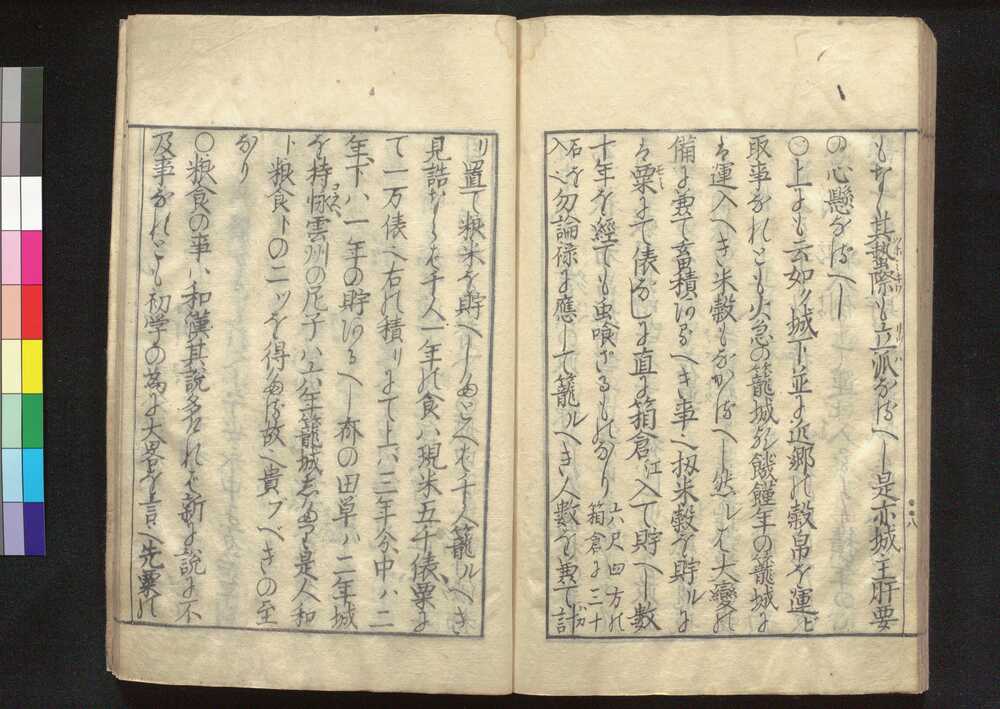 もなく其蟄際も立派なるへし是亦城主肝要
の心懸なるへし
〇上にも云如ク城下並に近郷の穀帛を運ビ
取事なれとも火急の籠城歟饑饉年の籠城に
は運入へき米穀もなかるへし然ルは大變の
備に兼て畜積あるへき事也扨米穀を貯ルに
は粟にて俵なしに直に箱倉江入て貯へし数
十年を經ても虫喰さるものなり 六尺四方の箱倉に三十
石を入へし 勿論禄に應して籠ルへき人數を兼て計
り置て粮米を貯へしたとへは千人籠ルへき
見詰ならは千人一年の食ハ現米五千俵粟に
て一万俵也右の積りにて上ハ三年分中ハ二
年下ハ一年の貯あるへし齊の田單ハ二年城
を持怺雲州の尼子ハ六年籠城したり是人和
ト粮食トの二ツを得たる故也貴フべきの至
なり
〇粮食の事ハ和漢其説多けれは新に説に不
及事なれとも初学の為に大畧を言へ先粟の